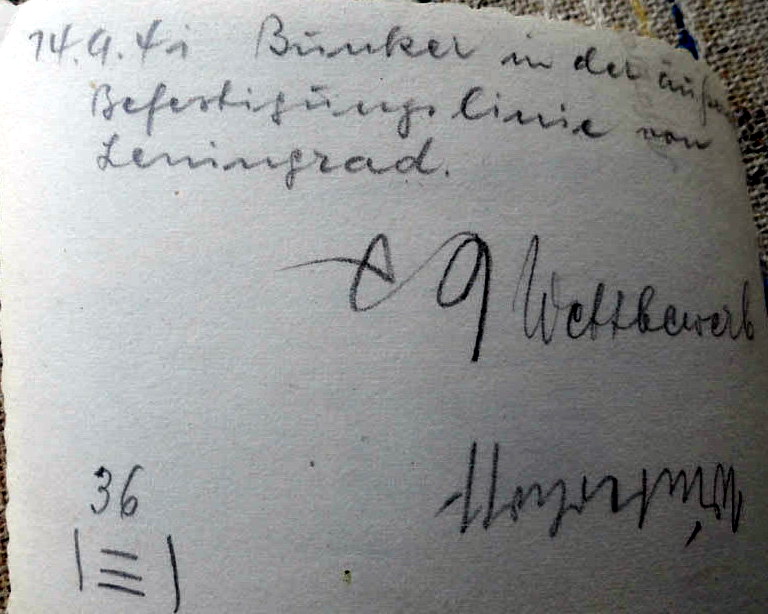 14.9.41 Bunker in der äußer
Befestigungslinie von
Leningrad.
9 Wettbewerb
36